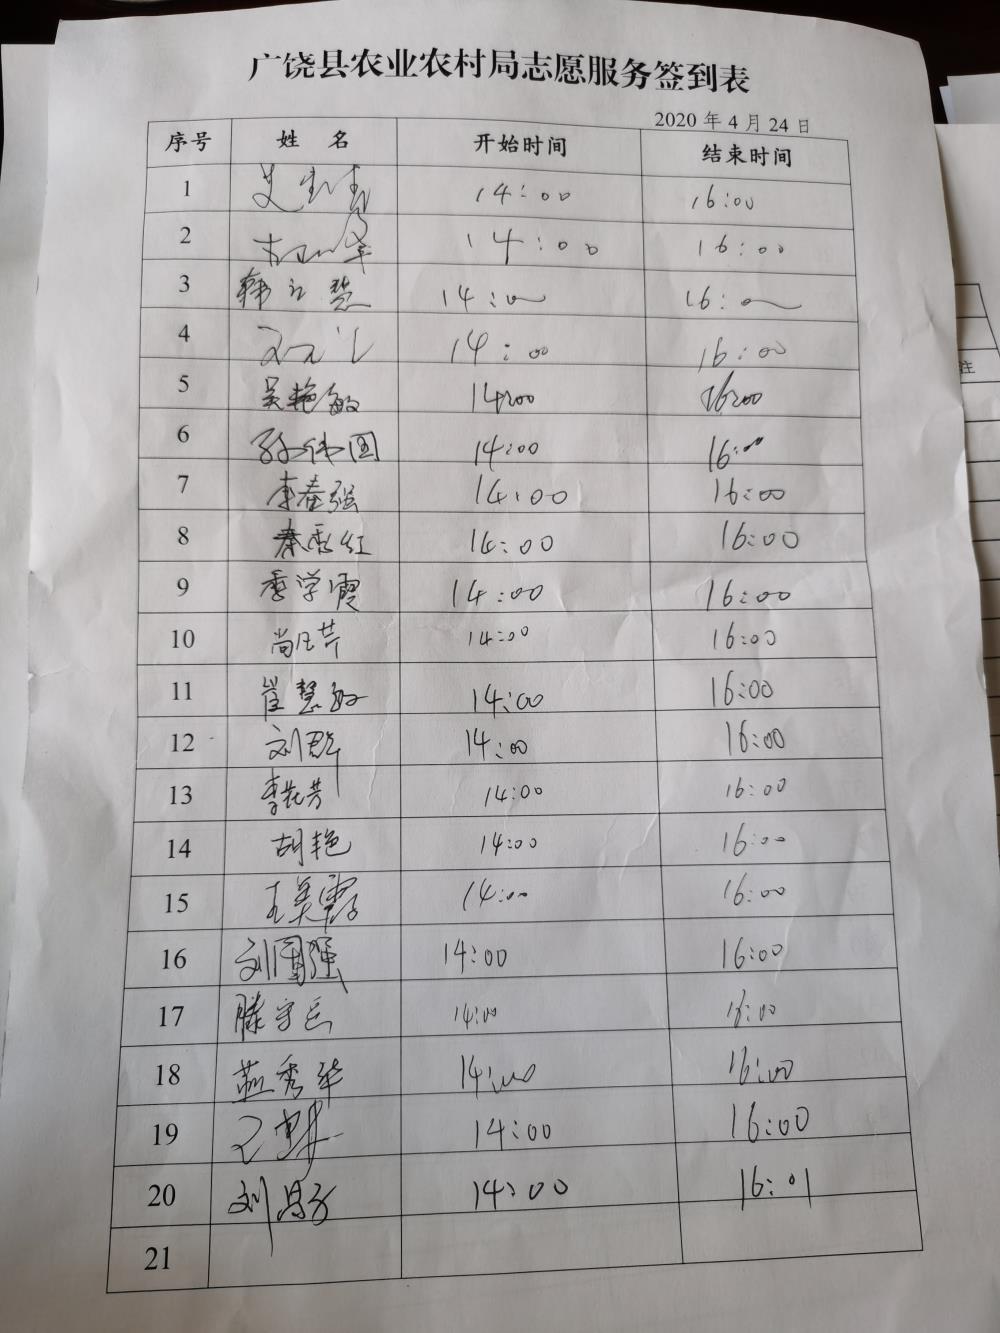 广饶县农业农村局志愿服务签到表
2020 年 4 月 24 日
序号 姓 名 开始时间 结束时间
1 14:00 16:00
2 14:00 16:00
3 14:00 16:00
4 14:00 16:00
5 吴艳敏 14:00 16:00
6 孙伟国 14:00 16:00
7 李春强 14:00 16:00
8 秦彩红 14:00 16:00
9 季学霞 14:00 16:00
10 14:00 16:00
11 崔慧敏 14:00 16:00
12 刘群 14:00 16:00
13 李花芳 14:00 16:00
14 胡艳 14:00 16:00
15 王美霞 14:00 16:00
16 刘国强 14:00 16:00
17 滕守 14:00 16:00
18 燕秀华 14:00 16:00
19 14:00 16:00
20 刘 14:00 16:01
21
注